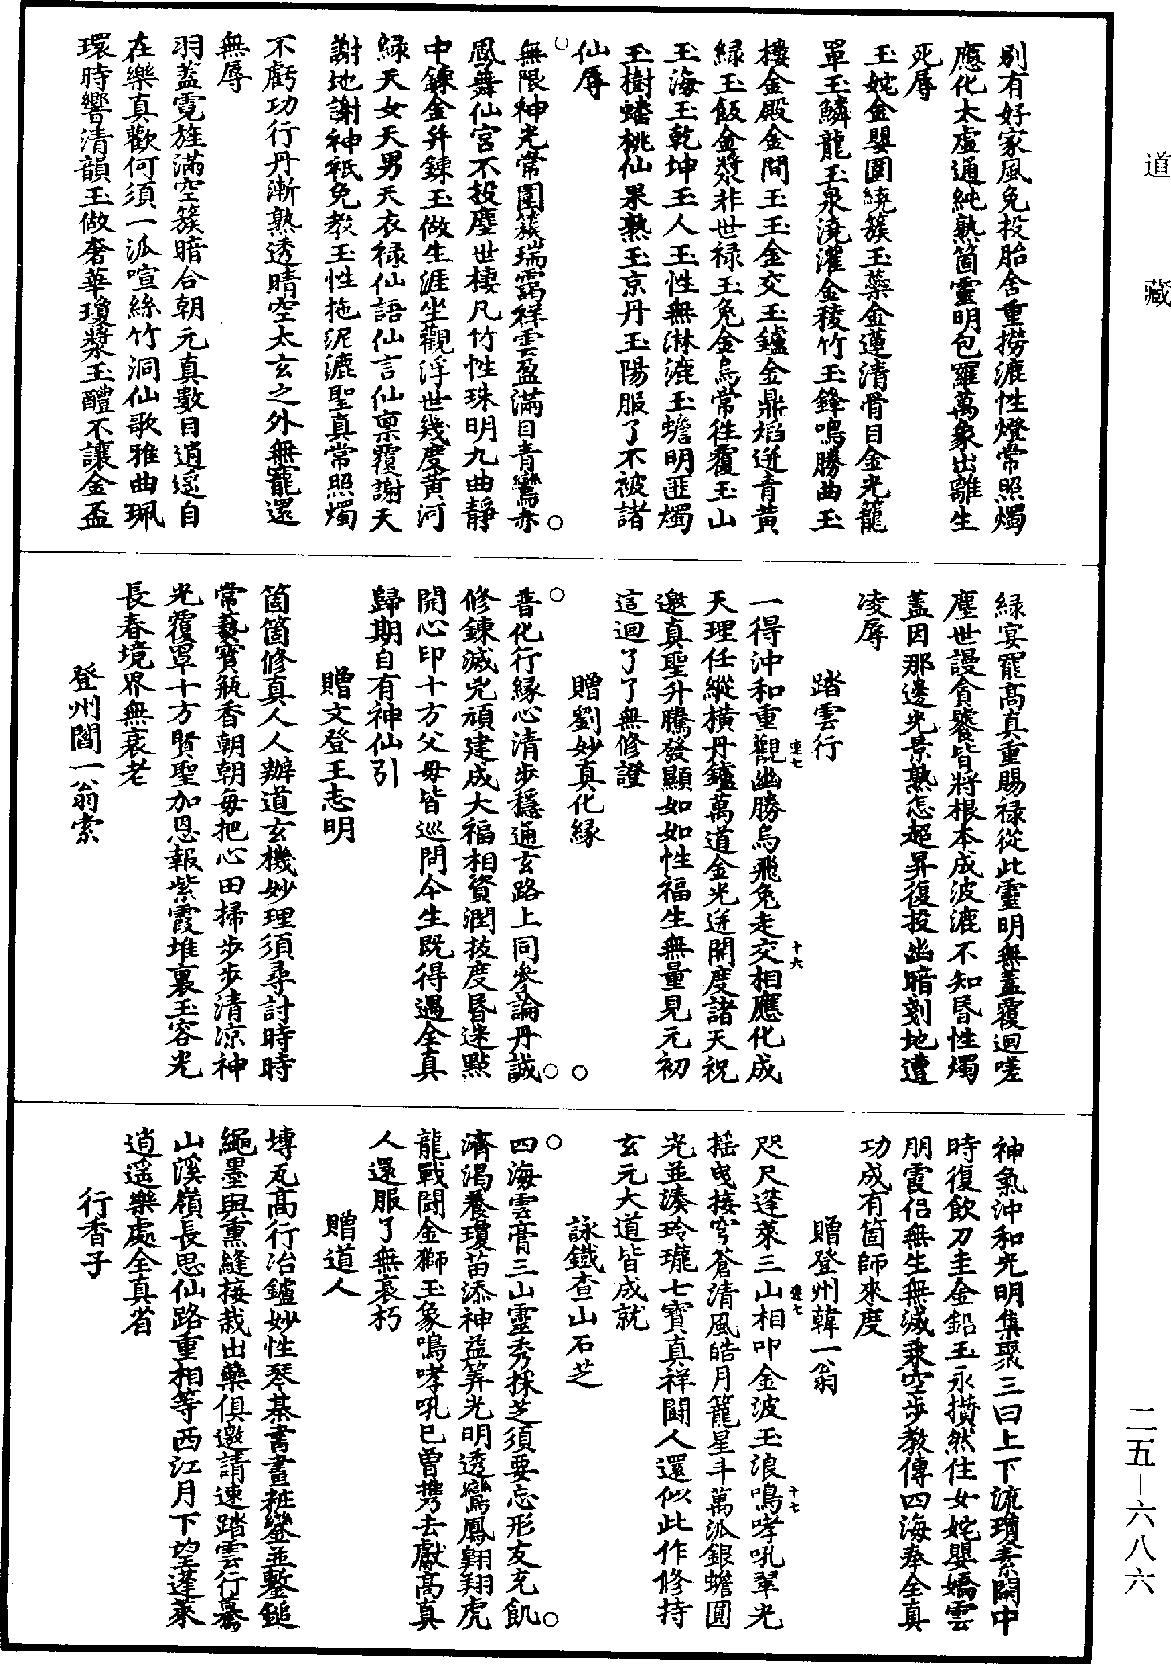 道藏
別有好家風免投胎舍重撈漉性燈常照燭
應化太虛通純熟箇靈明包羅萬象出離生
死辱
玉姹金嬰圍繞簇玉藥金蓮清骨目金光籠
罩玉鱗龍玉泉澆灌金稜竹玉鋒鳴勝曲玉
樓金殿金間玉玉金交玉鑪金鼎焰迸青黃
綠玉飯金漿非世祿玉兔金烏常往覆玉山
玉海玉乾坤玉人玉性無淋漉玉蟾明匪燭
玉樹蟠桃仙果熟玉京丹玉陽服了不被諸
仙辱
無限神光常圍簇瑞靄祥雲盈滿目青鸞亦○
鳳舞仙宮不投塵世棲凡竹性珠明九曲靜
中鍊金并鍊玉做生涯坐觀浮世幾度黃河
綠天女天男天衣祿仙語仙言仙稟覆謝天
謝地謝神祇免教玉性拖泥漉聖真常照燭
不虧功行丹漸熟透晴空太玄之外無寵還
無辱
羽蓋霓旌滿空簇暗合朝元真數目逍遙自
在樂真歡何須一派喧絲竹洞仙歌雅曲珮
環時響清韻玉做奢華瓊漿玉醴不讓金盃
綠宴罷高真重賜祿從此靈明無蓋覆迴嗟
塵世謾貪饕皆將根本成波漉不知昏性燭
蓋因那邊光景熟怎超昇復投幽暗刻地遭
凌辱
踏雲行
一得沖和重觀幽勝烏飛兔走交相應化成
天理任縱橫丹鑪萬道金光迸開度諸天祝
邀真聖升騰發顯如如性福生無量見元初
這迴了了無修證
贈劉妙真化緣
普化行緣心清步穩通玄路上同參論丹誠
修鍊滅兇頑建成大福相資潤拔度昏迷點
開心印十方父母皆巡問今生既得遇全真
歸期自有神仙引
贈文登王志明
箇箇修真人人辦道玄機妙理須尋討時時
常爇寶瓶香朝朝每把心田掃步步清涼神
光覆罩十方賢聖加恩報紫霞堆裏玉容光
長春境界無衰老
登州閻一翁索
神氣沖和光明集聚三曰上下流瓊素闕中
時復飲刀圭金鉛玉永攢然住女姹嬰嬌雲
朋霞侶無生無滅乘空步教傳四海奉全真
功成有箇師來度
贈登州韓一翁
咫尺蓬萊三山相叩金波玉浪鳴哮吼翠光
搖曳接穹蒼清風皓月籠星斗萬派銀蟾圓
光並湊玲瓏七寶真祥鬪人還似此作修持
玄元大道皆成就
詠鐵查山石芝
四海雲膏三山靈秀採芝須要忘形友充飢
濟渴養瓊苗添神益筭光明透鸞鳳翱翔虎
龍戰鬪金獅玉象鳴哮吼巳曾㩦去獻高真
人還服了無衰朽
贈道人
塼瓦高行冶鑪妙性琴棊書畫粧鑾並鏨鎚
繩墨與熏縫接栽出藥俱邀請速踏雲行驀
山溪嶺長思仙路重相等西江月下望蓬萊
逍遙樂處全真省
行香子
二五—六八六